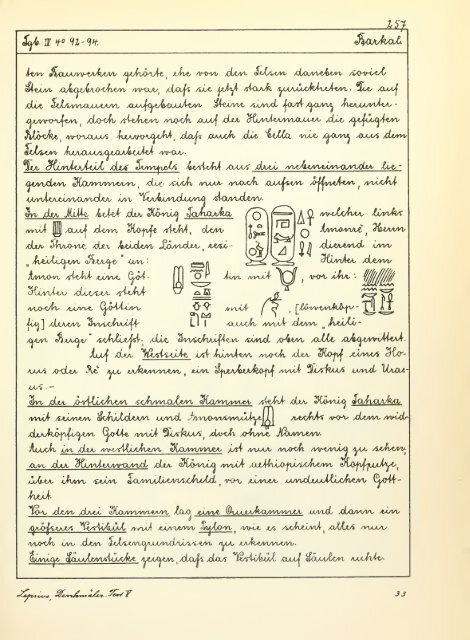 257
Tgb. IV 4° 92-94.
Barkal.
ten Bauwerken gehörte, ehe von den Felsen daneben soviel
Stein abgebrochen war, dafs sie jetzt stark zurücktreten. Die auf
die Felsmauern aufgebauten Steine sind fast ganz herunter-
geworfen, doch stehen noch auf der Hintermauer die gefügten
Blöcke, woraus hervorgeht, dafs auch die Cella nie ganz aus dem
Felsen herausgearbeitet war.
Der Hinterteil des Tempels besteht aus drei nebeneinander lie-
genden Kammern, die sich nur nach aufsen öffneten, nicht
untereinander in Verbindung standen.
In der Mitte betet der König Taharka welcher links
mit auf dem Kopfe steht, den Amonrē, Herrn
der Throne der beiden Länder, resi- dierend im
„heiligen Berge" an: Hinter dem
Amon steht eine Göt- tin mit , vor ihr:
Hinter dieser steht
noch eine Göttin mit , [löwenköp-
fig] deren Inschrift auch mit dem „heili-
gen Berge" schliefst; die Inschriften sind oben alle abgewittert.
Auf der Westseite ist hinten noch der Kopf eines Ho-
rus oder Rē zu erkennen, ein Sperberkopf mit Diskus und Urae-
us. —
In der östlichen schmalen Kammer steht der König Taharka
mit seinen Schildern und Amonsmütze rechts vor dem wid-
derköpfigen Gotte mit Diskus, doch ohne Namen.
Auch in der westlichen Kammer ist nur noch wenig zu sehen,
an der Hinterwand der König mit aethiopischem Kopfputze,
über ihm sein Familienschild, vor einer undeutlichen Gott-
heit.
Vor den drei Kammern lag eine Querkammer und dann ein
gröfseres Vestibül mit einem Pylon, wie es scheint, alles nur
noch in den Felsengrundrissen zu erkennen.
Einige Säulenstücke zeigen, dafs das Vestibül auf Säulen ruhte.
Lepsius, Denkmäler. Text V
33